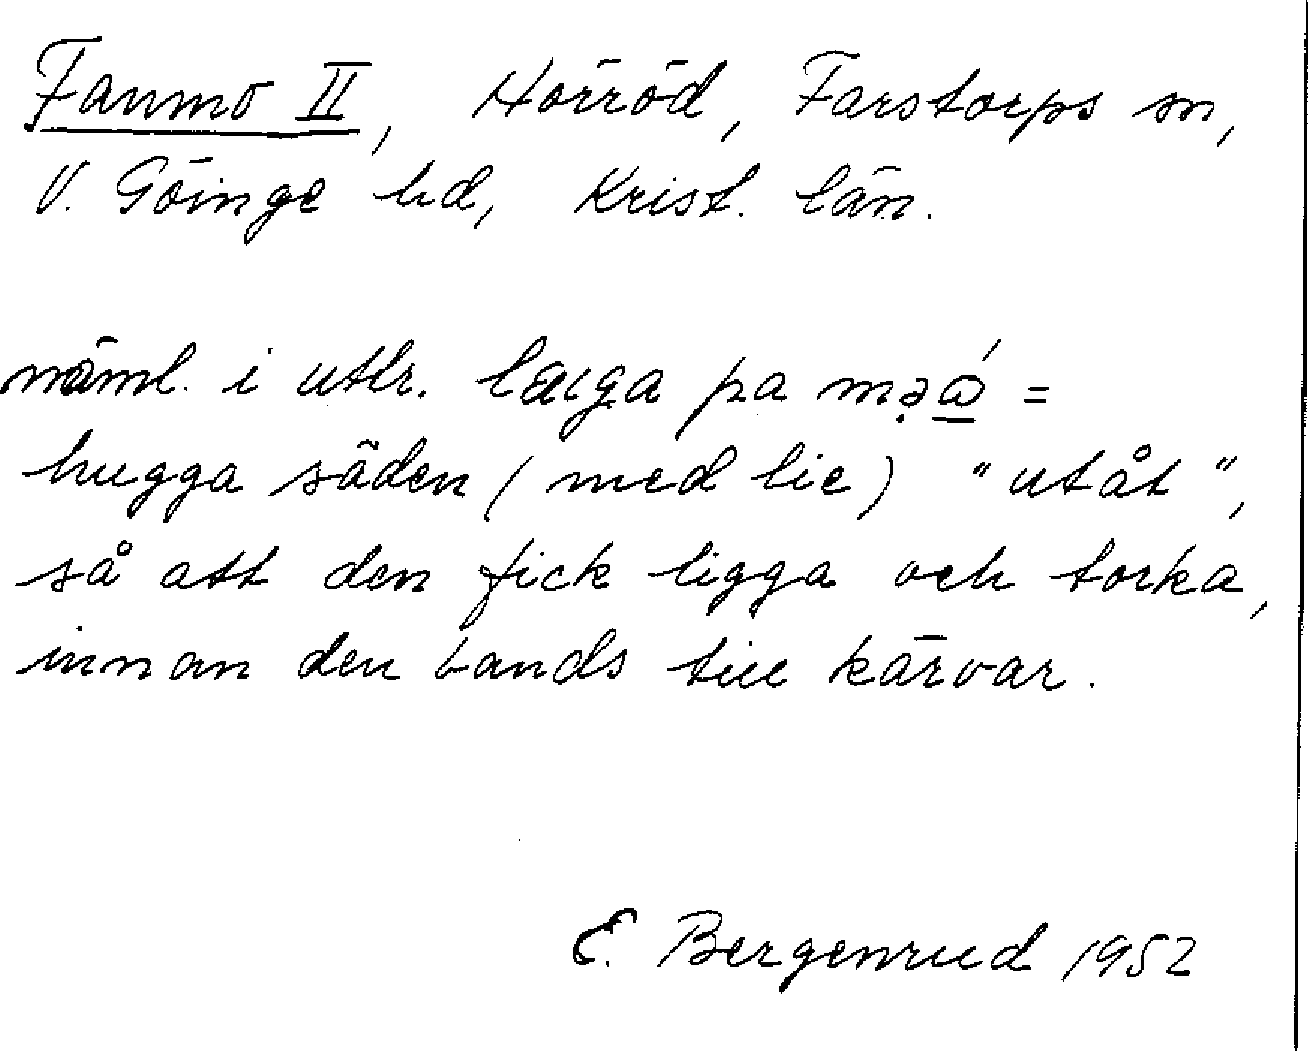 Fanmo II, Hörröd, Farstorps sn,
V. Göinge hd, Krist. län.
näml. i uttr. pa =
hugga säden (med lie) "utåt",
så att den fick ligga och torka,
innan den bands till kärvar.
E. Bergenrud 1952